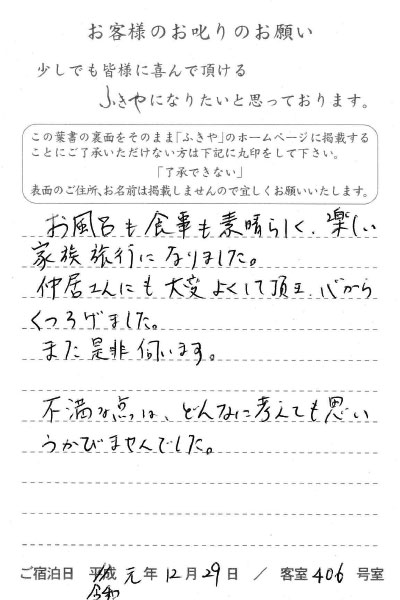 お客様のお叱りのお願い
少しでも皆様に喜んで頂ける
ふきやになりたいと思っております。
この葉書の裏面をそのまま「ふきや」のホームページに掲載する
ことにご了承いただけない方は下記に丸印をして下さい。
「了承できない」
表面のご住所、お名前は掲載しませんので宜しくお願いいたします。
お風呂も食事も素晴らしく、楽しい
家族旅行になりました。
仲居さんにも大変よくして頂き、心から
くつろげました。
また是非伺います。
不満な点は、どんなに考えても思い
うかびませんでした。
ご宿泊日 平成 元年12月29日 / 客室406号室
令和